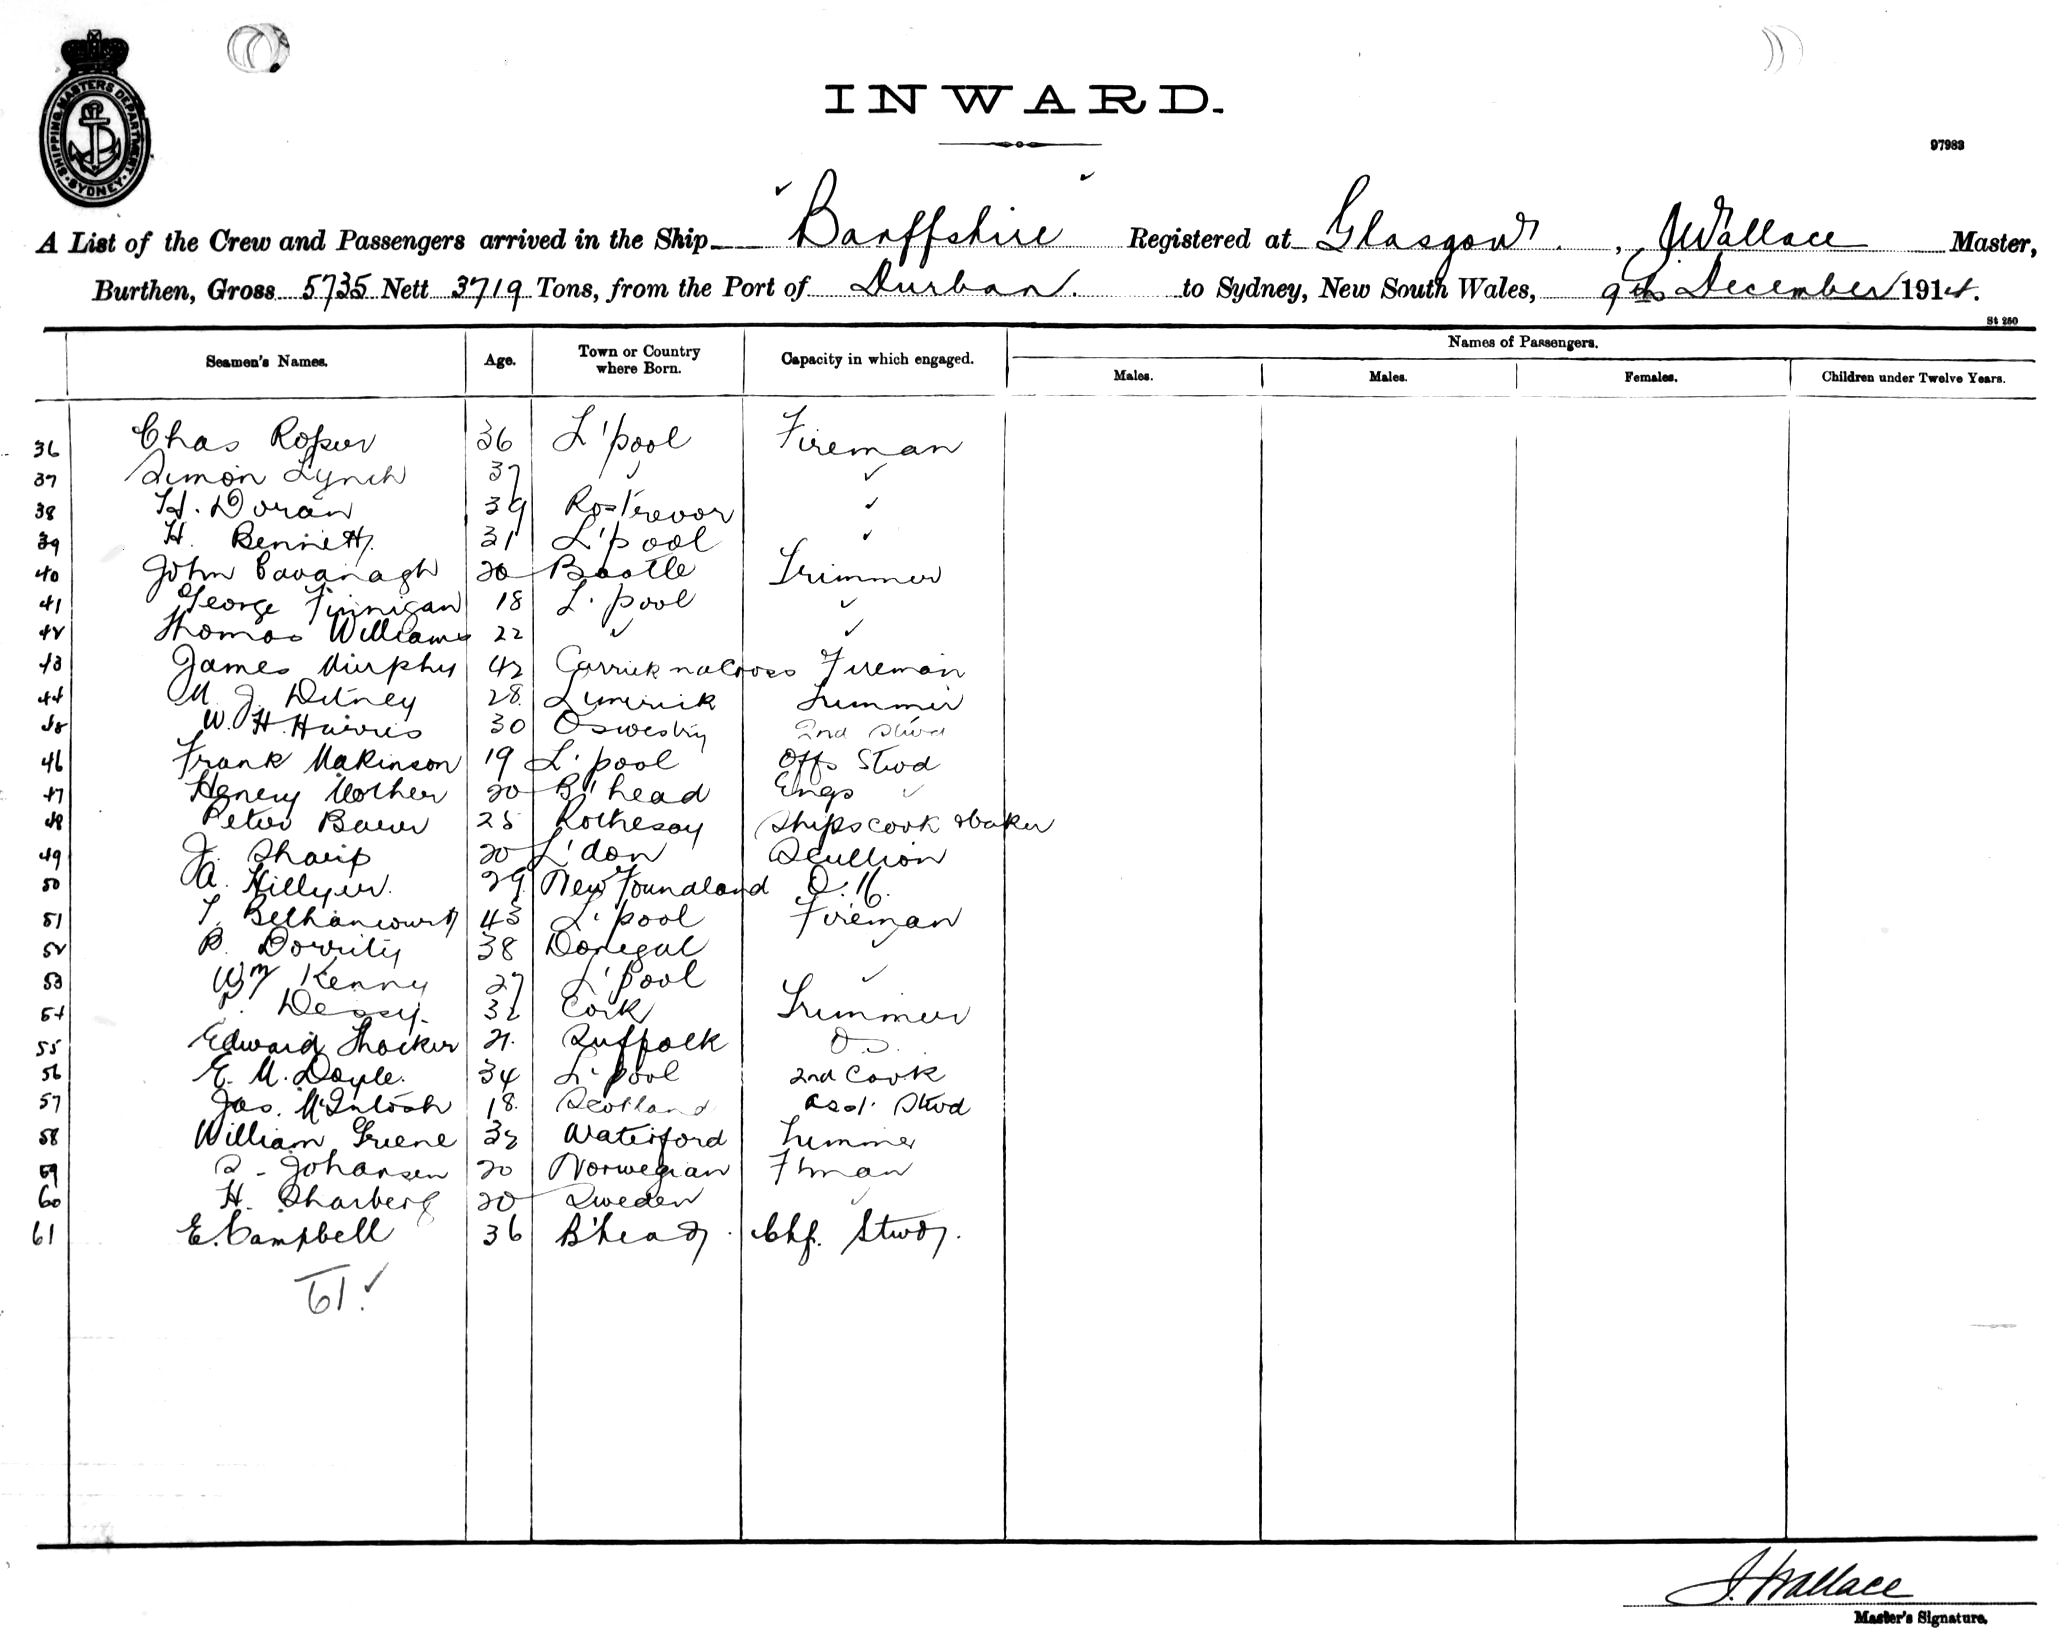 SHIPPING MASTERS DEPARTMENT
SYDNEY
INWARD.
97983
A List of the Crew and Passengers arrived in the Ship "Banffshire" Registered at Glasgow, J Wallace Master,
Burthen, Gross 5735 Nett 3719 Tons, from the Port of Durban. to Sydney, New South Wales, 9th December 1914.
St 250
Seamen's Names. Age. Town or Country where Born. Capacity in which engaged. Names of Passengers.
Males. Males. Females. Children under Twelve Years.
36 Chas Roper 36 L'pool Fireman
37 Simon Lynch 37 ✓ ✓
38 H. Doran 39 Rostrevor ✓
39 H. Bennett 31 L'pool ✓
40 John Cavanagh 20 Bootle Trimmer
41 George Finnigan 18 L'pool ✓
42 Thomas Williams 22 ✓ ✓
43 James Murphy 42 Carrick na Cross Fireman
44 M. J. Ditney 28 Limerick Trimmer
45 W. H. Harris 30 Oswestry 2nd Stwd
46 Frank Makinson 19 L'pool Offs Stwd
47 Henery 20 B'head Engs ✓
48 Peter 25 Rothesay Ships cook & baker
49 J. Sharp 20 L'don Scullion
50 A. Hillyer. 29 New Foundland
51 T. Bethancourt 43 L'pool Fireman
52 B. Dorrity 38 Donegal ✓
53 Wm Kenny 27 L'Pool ✓
54 Dessy. 32 Cork Trimmer
55 Edward 21. Suffolk
56 E. M. Doyle. 34 L'pool 2nd Cook
57 Jas. McIntosh 18. Scotland asst. Stwd
58 William Greene 32 Waterford Trimmer
59 Johansen 20 Norwegian F'man
60 H. Sharberg 20 Sweden ✓
61 E. Campbell 36 B'head. Chf. Stwd.
61 ✓
J. Wallace
Master's Signature.